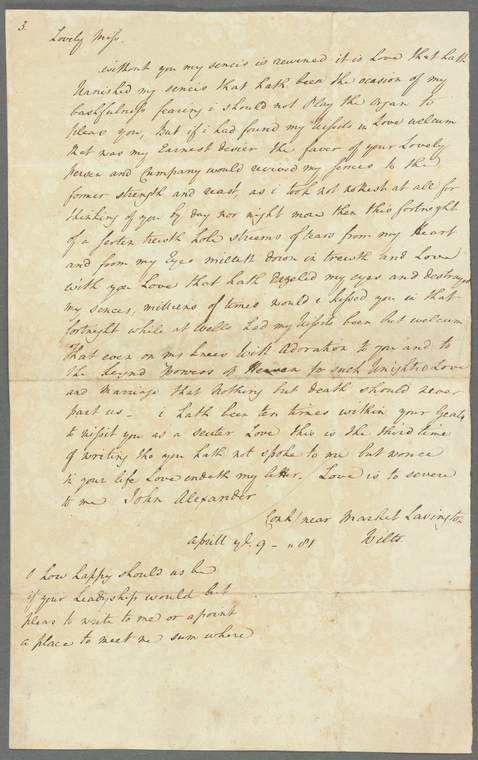 3.
Lovely Miss.
without you my sencis is rewined it is Love that hath
Vanished my sencis that hath been the ocasion of my
bashfulness fearing i should not Play the organ to
Pleas you, But if i had found my Vissets in Love welcum
that was my Earnest desier the faver of your Lovely
Person and Cumpany would revived my sences to the
former strength and reast, as i took not no Rest at all for
thinking of you by day nor night more then this fortnight
of a serten treuth hole streams of tears from my heart
and from my Eyes millett down in treuth and Love
with you Love that hath Dazeled my eyes and destroyed
my sences, millions of times would i kissed you in that
fortnight while at Wells had my Vissets been but welcum
that even on my knees With Adoration to you and to
the Powers of Heaven for such Unighted Love
and Marriage that Nothing but death should never
part us - i hath been ten times within your Geats
to Vissit you as a Love this is the third time
of writing tho you hath not spoke to me but wonce
in your life Love endeth my letter. Love is to severe
to me John Alexander
near Market Lavington
Aprill ye. 9 - " 81 Wilts.
O how happy should us be
if your Leadyship would but
pleas to write to me or apoint
a place to meet me sum where